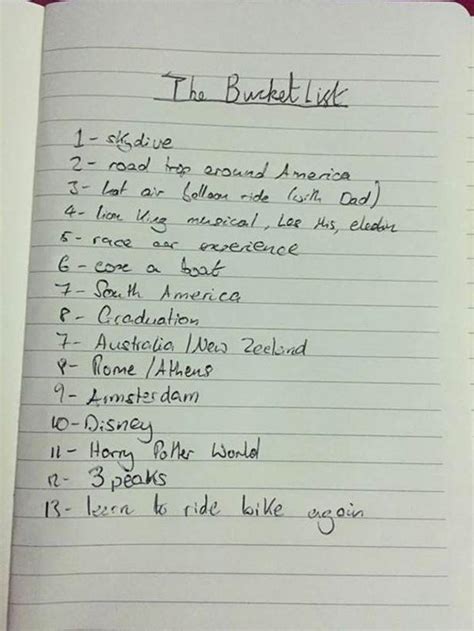 The Bucket List
1 - skydive
2 - road trop around America
3 - hot air balloon ride (with Dad)
4 - lion King musical, Les Mis,
5 - race car experience
6 - a boat
7 - South America
8 - Graduation
7 - Australia / New Zeeland
8 - Rome / Athens
9 - Amsterdam
10 - Disney
11 - Harry Potter World
12 - 3 peaks
13 - learn to ride bike again